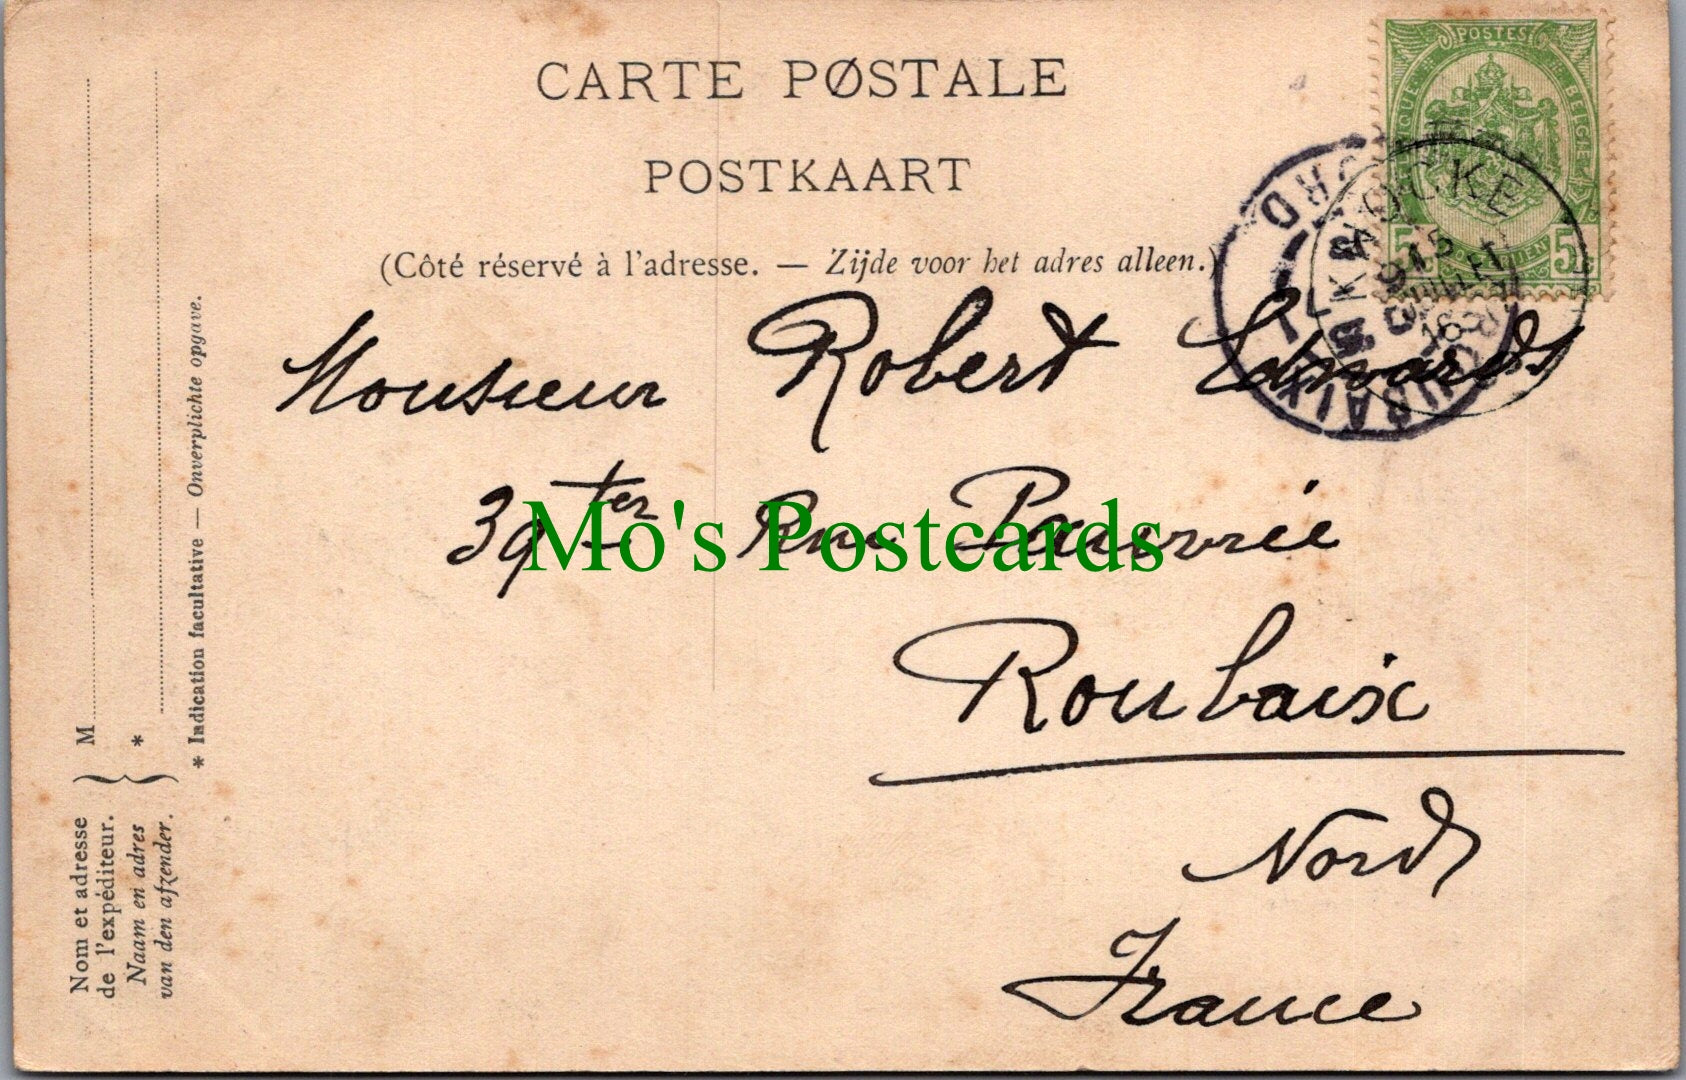 CARTE PØSTALE
POSTKAART
(Côté réservé à l'adresse. — Zijde voor het adres alleen.)
POSTES
BELGIE
5 5
KNOCKE
15
JUILLET
18
ROUBAIX
NORD
Monsieur Robert Edwards
39 ter Rue Pauvrée
Roubaix
Nord
France
Mo's Postcards
Nom et adresse
de l'expéditeur.
Naam en adres
van den afzender.
M
*
* Indication facultative — Onverplichte opgave.